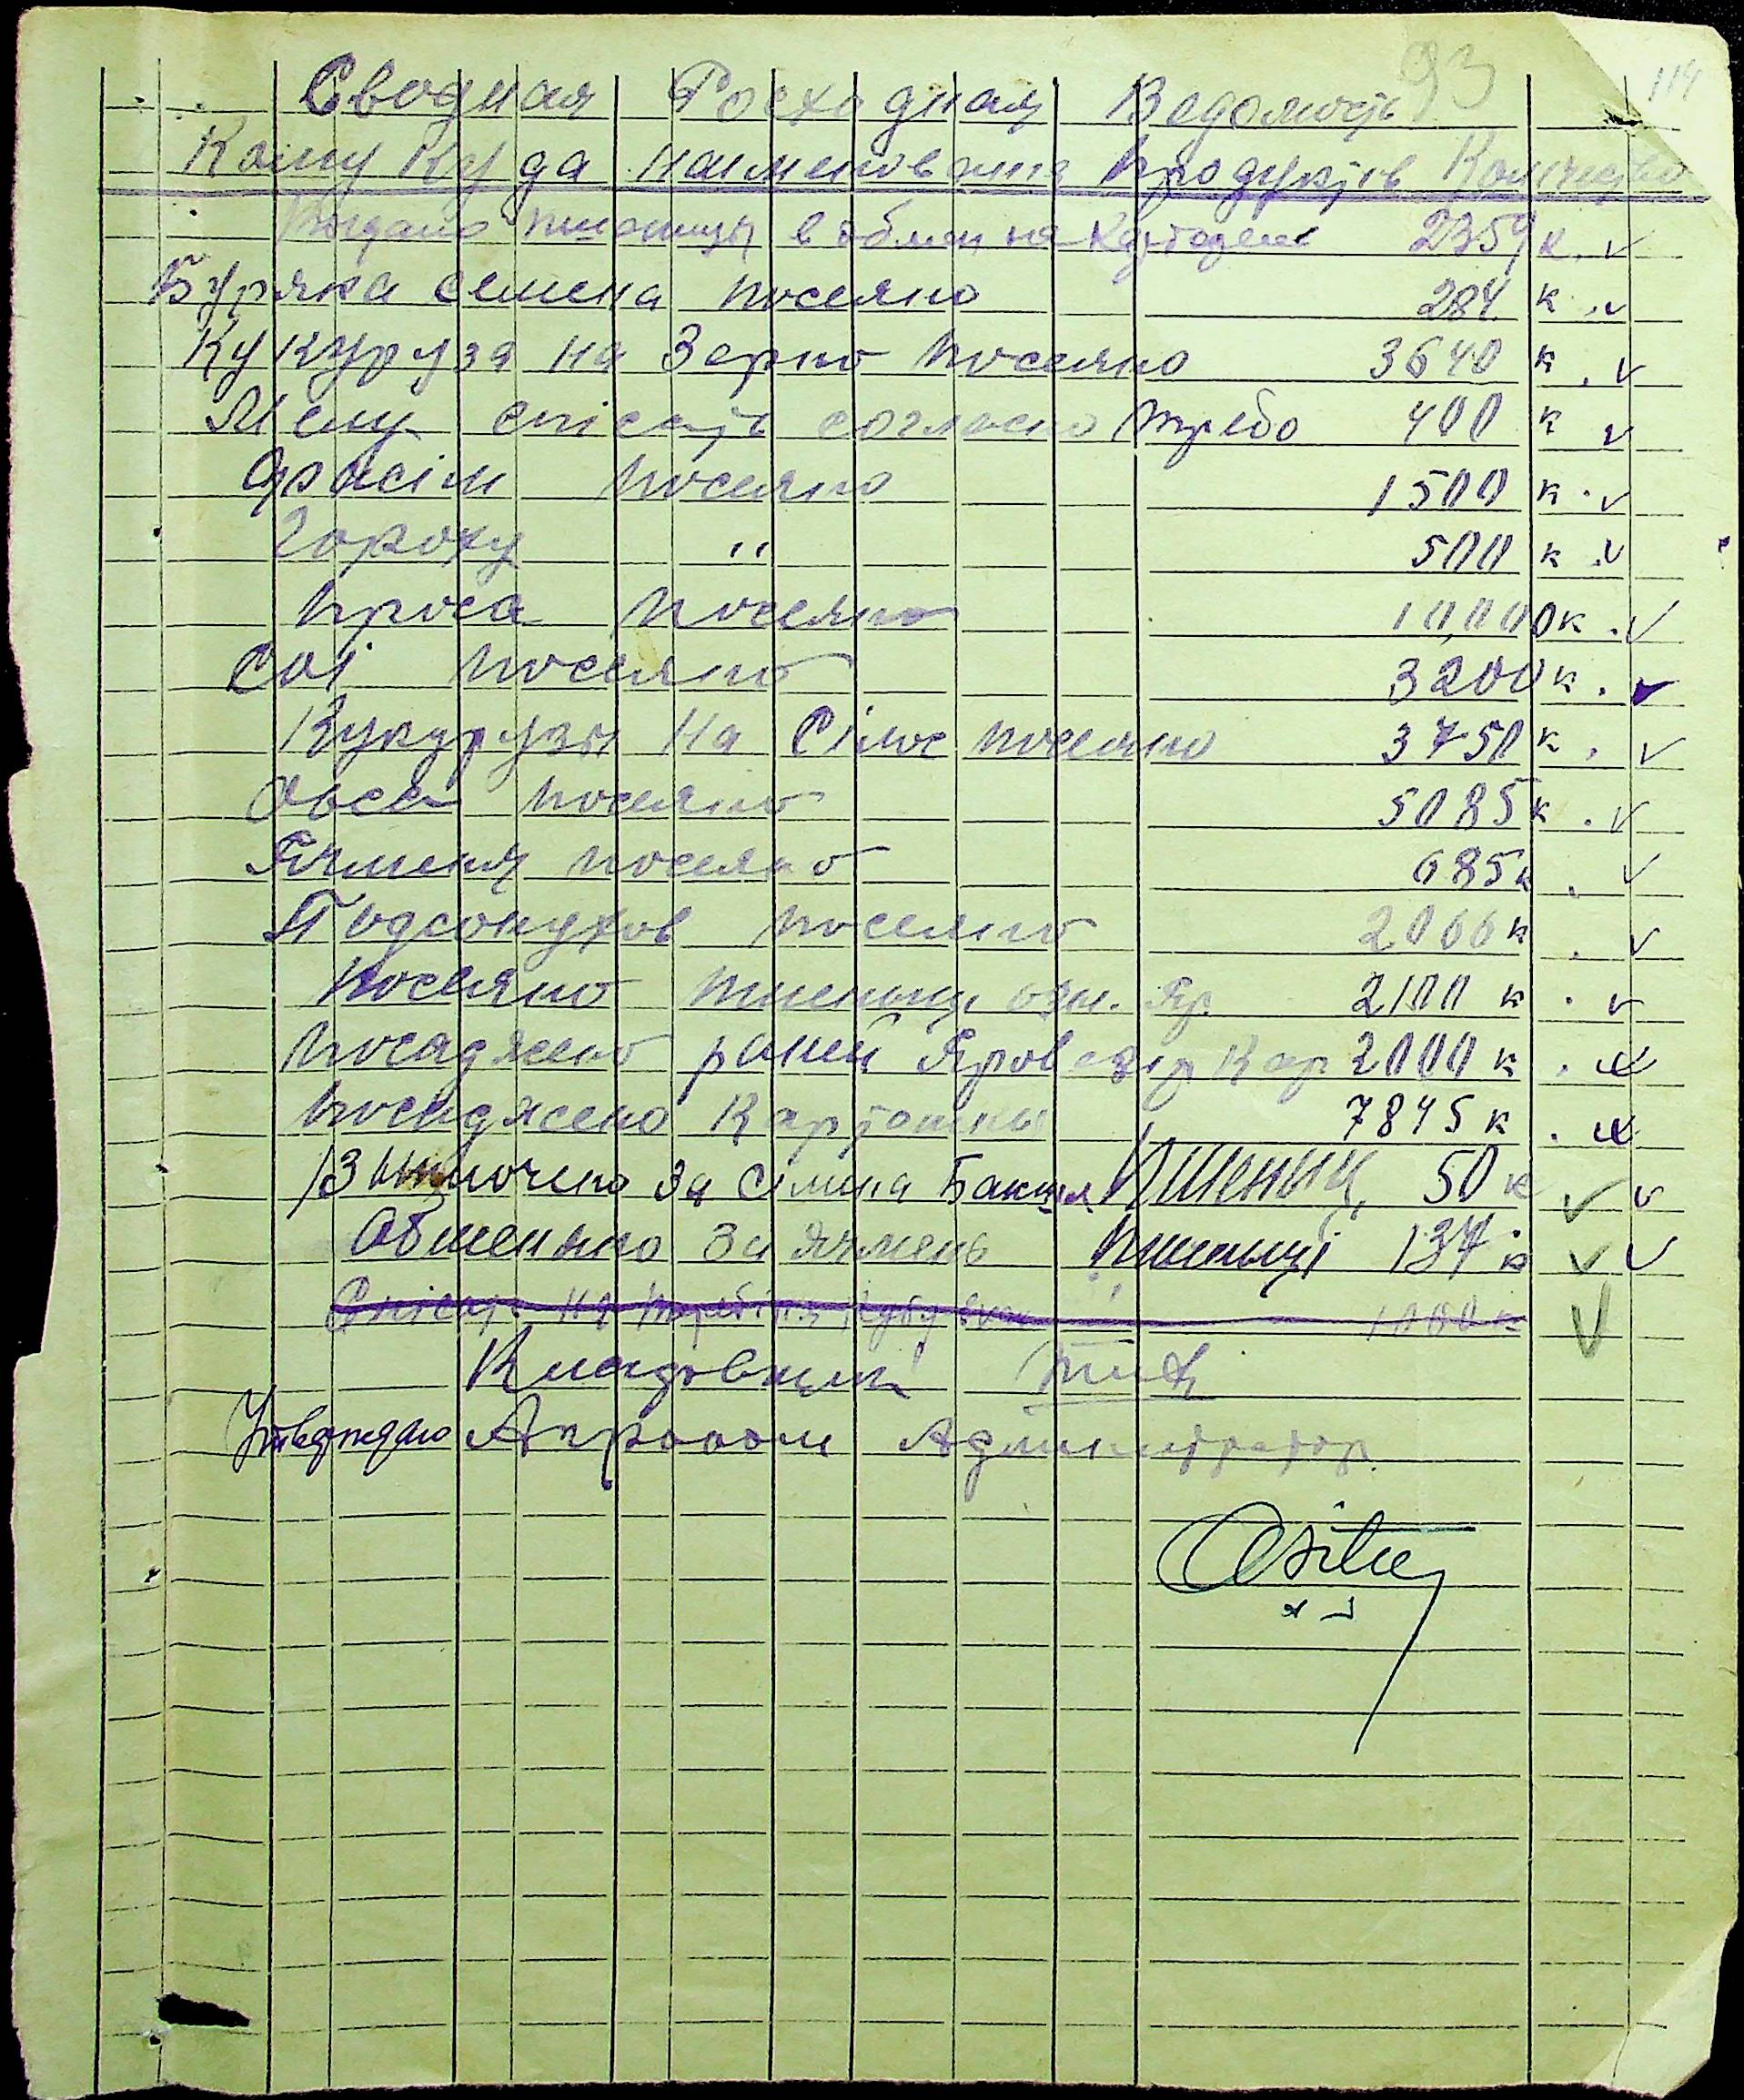 93
114
Сводная Росходная Ведомость
Кому Куда наименование продуктів Количество
Выдано пшеницы в обмен на Картофель 2359 к. v
Буряка семена посеяно 284 к. v
Кукуруза на Зерно посеяно 3640 к. v
спісать согласно требо 400 к v
посеяно 1500 к. v
Гороху " 500 к. v
Проса посеяно 10,000к. v
Сої посеяно 3200к. v
Кукурузы на Сілос посеяно 3750к. v
Овса посеяно 5085к. v
Ячменя посеяно 685к. v
Подсонухов посеяно 2000к. v
Посеяно пшеници озм. Яр. 2100 к. v
Посаджено раней Яров Кар 2000 к. v
Посаджено Картошки 7845 к. v
за Сімена Бакшя Пшениц 50 к v v
Обменяно За ячмень пшеници 134 к v v
Спісать на 1000 к V
Кладовщик
Утверждаю Агроном Администратор.